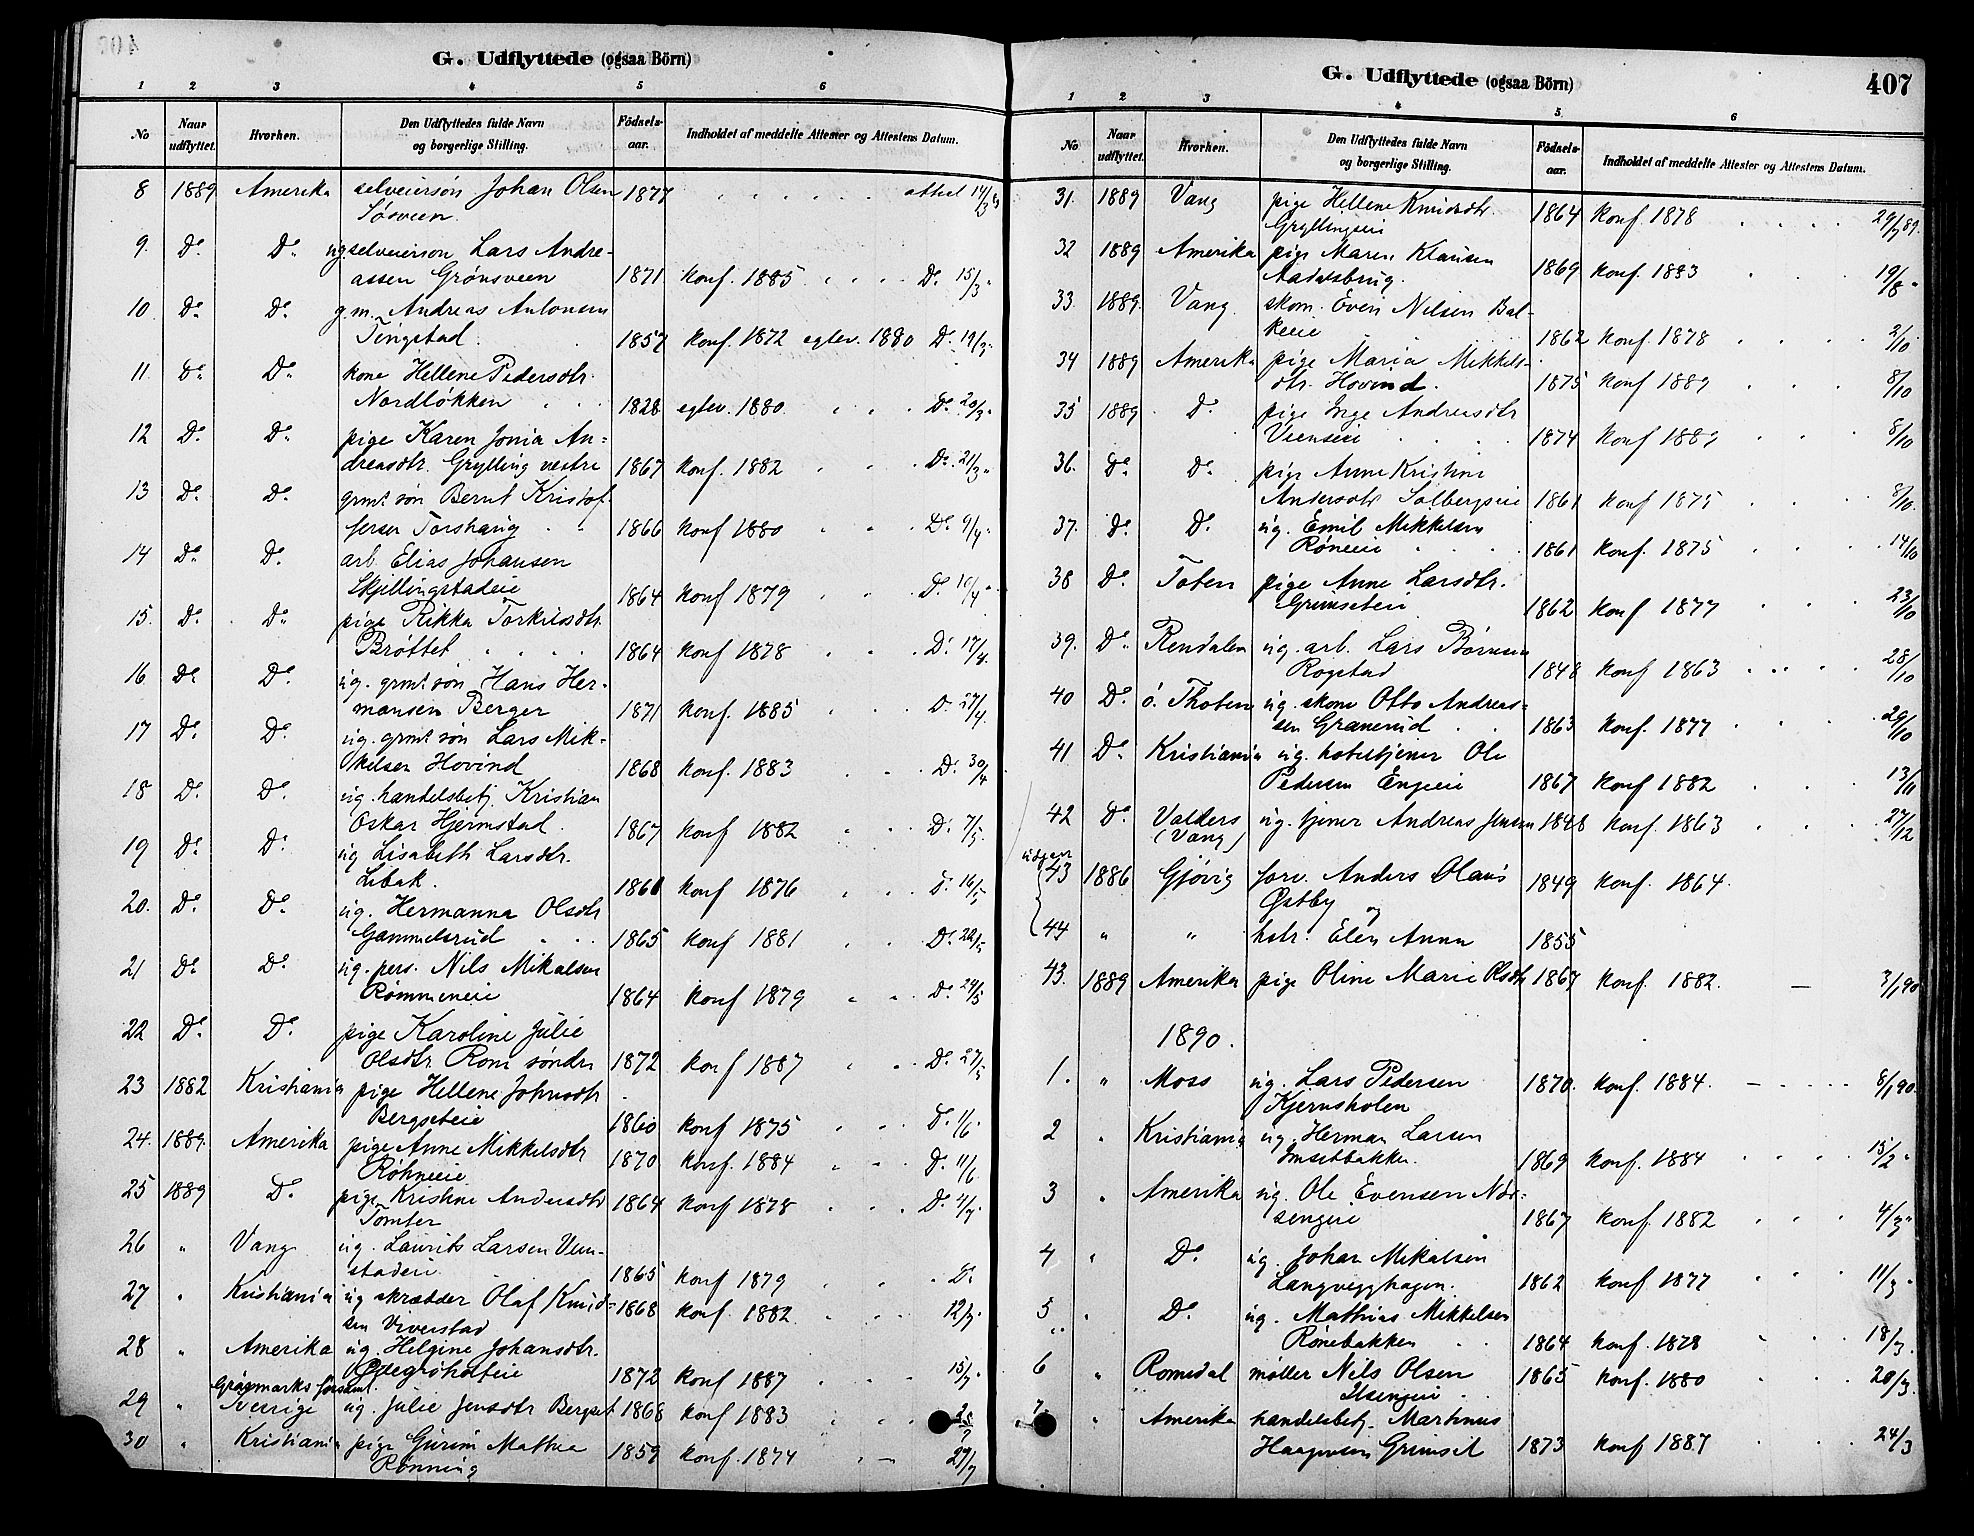 G. Udflyttede (ogsaa Börn)
1 2 3 4 5 6
No Naar udflyttet. Hvorhen. Den Udflyttedes fulde Navn og borgerlige Stilling. Födsels-aar. Indholdet af meddelte Attester og Attestens Datum.
8 1889 Amerika selveiersön Johan Olsen 1877 attest 14/3
9. Do Do ug selveierson Lars Andre-
assen Grönsveen 1871 konf. 1885 Do 15/3
10 Do Do g.m. Andreas Antonsen
Tingstad 1857 konf. 1872 egtev. 1880 Do 19/3
11. Do Do kone Hellene Pedersdtr.
Nordlökken 1828 egtev. 1880. Do 20/3
12 Do Do pige Karen Jonia An-
dreasdtr. Grylling vestre 1867 konf. 1882 Do 21/3
13 Do Do grmt. sön Bernt Kristof-
fersen Torshaug 1866 konf 1880 Do 9/4
14 Do Do arb. Elias Johansen
Skjellingstadeie 1864 konf 1879 Do 10/4
15. Do Do pige Rikka Torkildsdtr.
Bröttet 1864 konf 1878 Do 17/4
16 Do Do ug. grmt sön Hans Her-
mansen Berger 1871 konf. 1885 Do 27/4
17 Do Do ug. grmt sön Lars Mik-
kelsen Hovind 1868 konf. 1883 Do 30/4
18 Do Do ug. handelsbetj. Kristian
Oskar Hjermstad 1867 konf 1882 Do 7/5
19 Do Do ug Lisabeth Larsdtr.
Libak. 1861 konf 1876 Do 16/5
20. Do Do ug. Hermanna Olsdtr
Gammelsrud 1865 konf 1881 Do 22/5
21 Do Do ug. pers. Nils Mikalsen
Römmeneie 1864 konf 1879 Do 24/5
22 Do Do pige Karoline Julie
Olsdtr. Rom söndre 1872 konf 1887 Do 27/5
23 1882 Kristiania pige Hellene Johnsdtr
Bergseteie 1860 konf 1875 Do 1/6
24. 1889. Amerika pige Anne Mikkelsdtr
Röhneeie 1870 konf. 1884 Do 11/6
25 1889 Do pige Kristine Andersdtr
Tomter 1864 konf 1878 Do 4/7
26 " Vang ug. Laurits Larsen Veen-
stadeie 1865 konf 1879 Do
27 " Kristiania ug skrædder Olaf Knud-
sen Viverstad 1868 konf. 1882 12/7
28 " Amerika ug. Helgine Johansdtr.
1872 konf 1887 15/7
29 " Sverige ug. Julie Jensdtr Bergset 1868 konf 1883
30 " Kristiania pige Gurine Mathea
Rønning 1859 konf. 1874 29/7
G. Udflyttede (ogsaa Börn) 407
1 2 3 4 5. 6
No Naar udflyttet. Hvorhen. Den Udflyttedes fulde Navn og borgerlige Stilling. Födsels-aar. Indholdet af meddelte Attester og Attestens Datum.
31. 1889 Vang pige Hellene Knudsdtr.
Gryllingeie 1864 konf 1878 29/7 89.
32 1889 Amerika pige Maren Klausen
Aadalsbrug. 1869 konf. 1883 19/8
33. 1889. Vang skom. Even Nilsen Bal-
keeie 1862 konf. 1878 2/10
34 1889 Amerika pige Maria Mikkels-
dtr. Hovind. 1875 konf 1889 8/10
35 1889 Do pige Inge Andreasdtr
Veenseie 1874 konf 1889 8/10
36. Do Do pige Anne Kristine
Andersdtr Solbergseie 1861 konf 1875 8/10.
37. Do Do ug. Emil Mikkelsen
Röneeie 1861 konf. 1875 14/10
38 Do Toten pige Anne Larsdtr.
Grimseteie 1862 konf 1877 23/10
39. Do Rendalen ug. arb. Lars Börresen
Rogstad 1848 konf 1863 28/10
40 Do ö. Thoten ug. skom Otto Andreas-
sen Granerud 1863 konf. 1877 29/10
41 Do Kristiania ug. hoteltjener Ole
Pedersen Engeie 1867 konf 1882 13/11
42 Do Valders
(Vang) ug. tjener Andreas Jensen 1848 konf. 1863 27/12
43 1886 Gjövig forv. Anders Olaus
Østby og 1849 konf. 1864.
44 " " hstr. Elen Anna 1855
43. 1889 Amerika pige Oline Marie Olsdtr 1867 konf. 1882. — 3/1 90
1890.
1. " Moss ug. Lars Pedersen
Kjernsholen 1870. konf. 1884. 8/1 90.
2 " Kristiania ug. Herman Larsen
Imsetbakken. 1869 konf. 1884 15/2
3 " Amerika ug. Ole Evensen Nor-
sengeie 1867 konf. 1882 4/3
4 " Do ug. Johan Mikalsen
Langvegghagen. 1862 konf 1877 11/3
5 " Do ug. Mathias Mikkelsen
Rönebakken 1864 konf. 1878 18/3
6 " Romedal möller Nils Olsen
Ilsengeie 1865 konf. 1880 20/3.
7. " Amerika handelsbetj. Martinus
Haagensen Grimset 1873 konf 1887 24/3